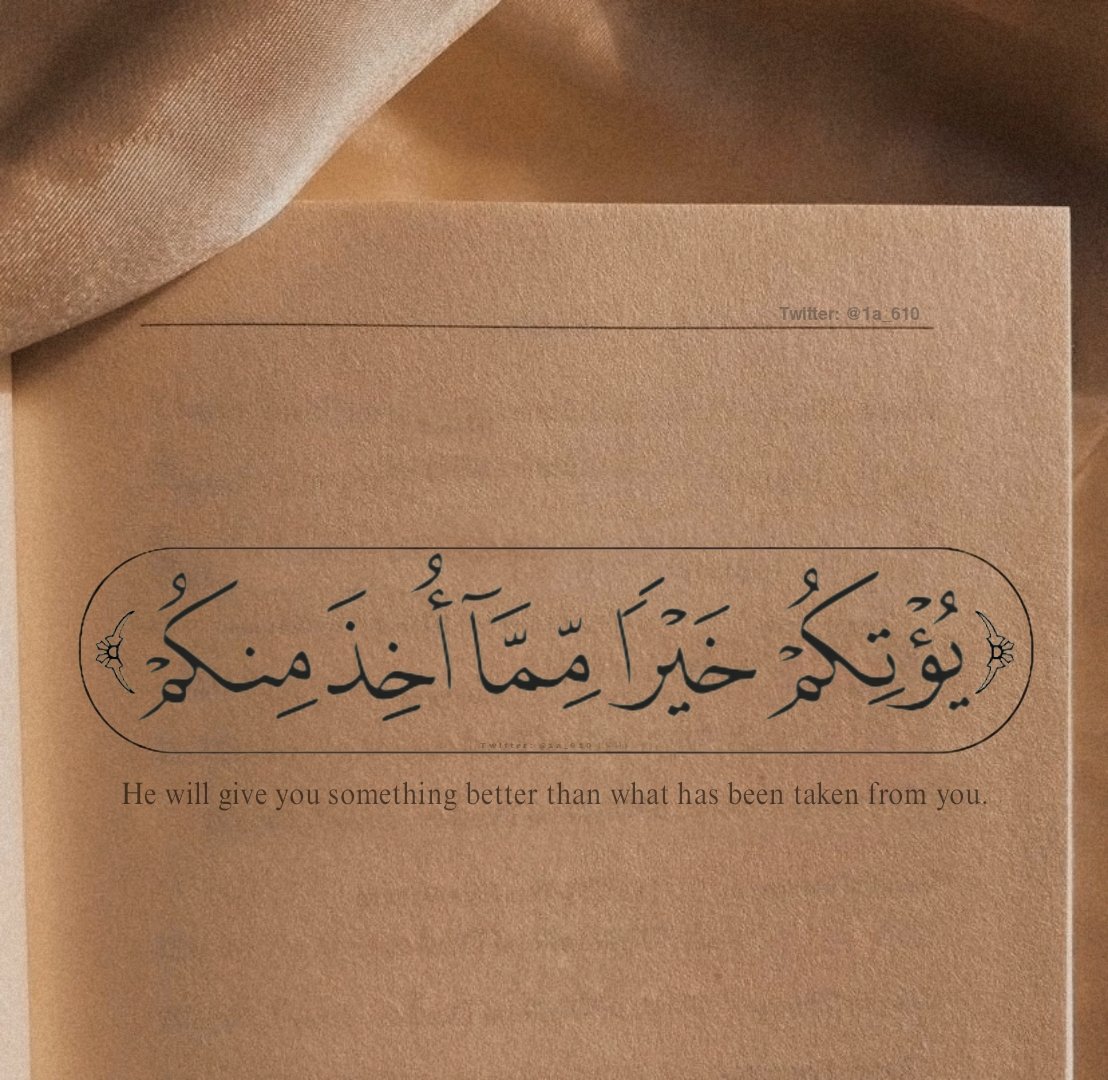 Twitter: @1a_610
يُؤْتِكُمْ خَيْرًا مِّمَّآ أُخِذَ مِنكُمْ
Twitter: @1a_610
He will give you something better than what has been taken from you.